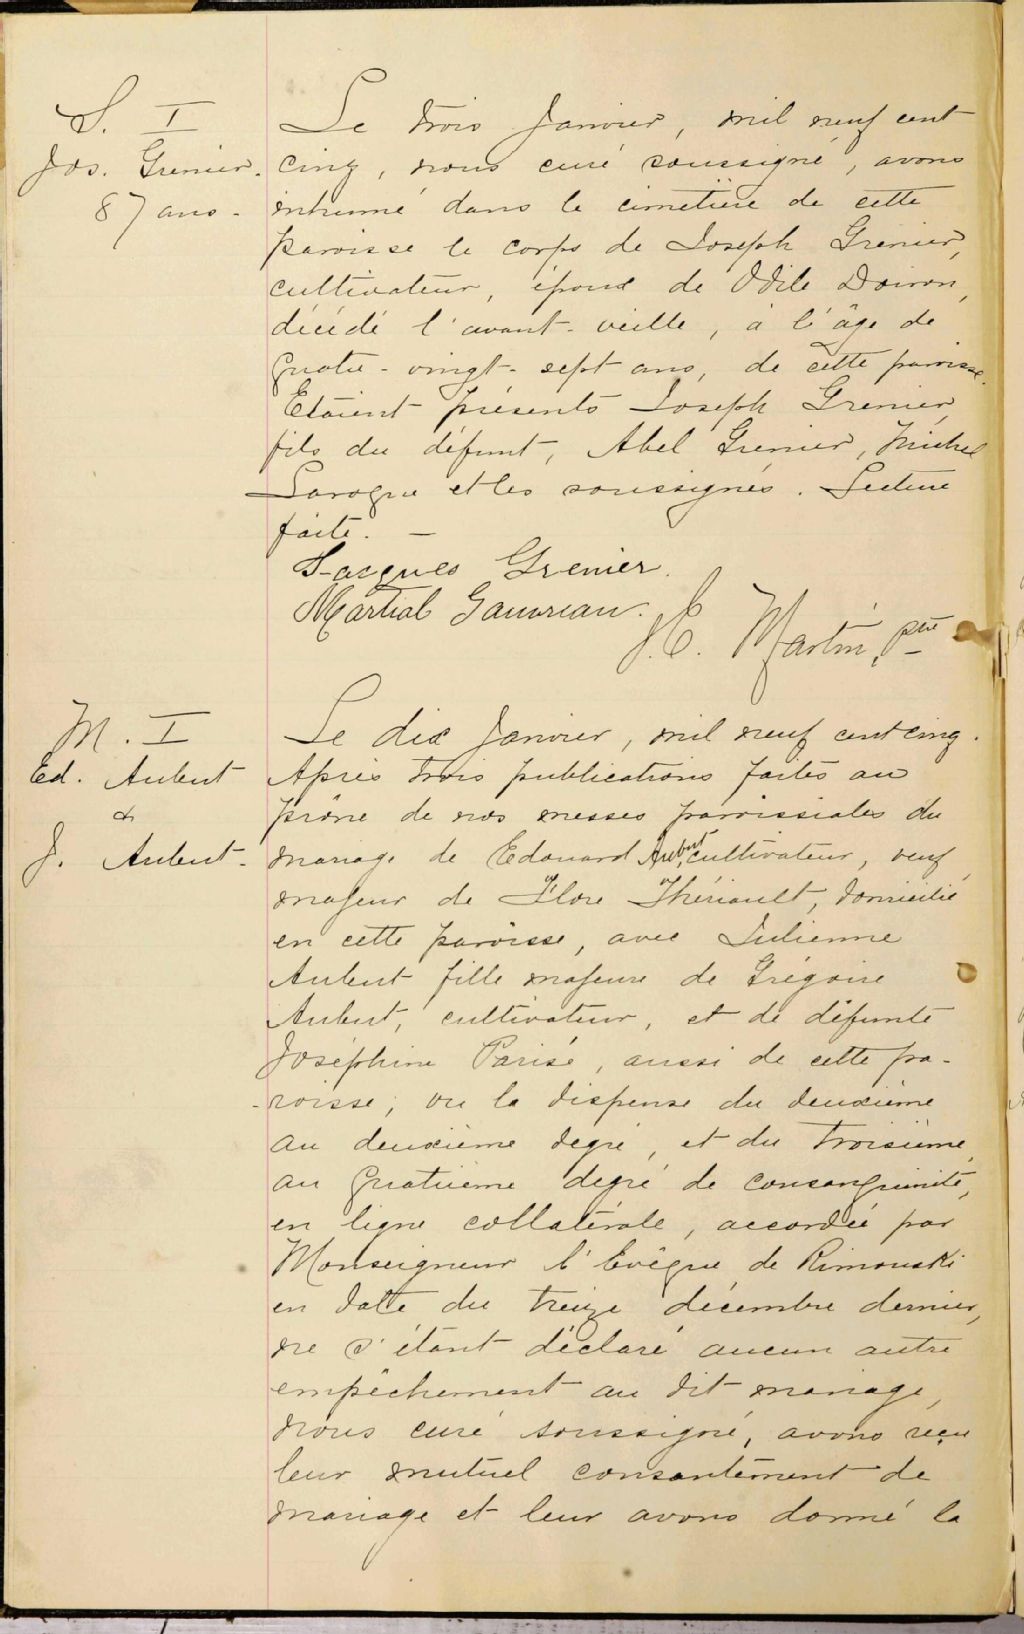 S. I
Jos. Grenier.
87 ans.
Le trois Janvier, mil neuf cent
cinq, nous curé soussigné, avons
inhumé dans le cimetière de cette
paroisse le corps de Joseph Grenier,
cultivateur, époux de Odile Doiron,
décédé l'avant-veille, à l'âge de
quatre-vingt-sept ans, de cette paroisse.
Etaient présents Joseph Grenier,
fils du défunt, Abel Grenier, Michel
Larogue et les soussignés. Lecture
faite. —
Jacques Grenier.
Martial Gauvreau.
J.C. Martin, Ptre
M. I
Ed. Aubut
&
J. Aubut.
Le dix Janvier, mil neuf cent cinq.
Après trois publications faites au
prône de nos messes paroissiales du
mariage de Edouard Aubut, cultivateur, veuf
majeur de Flore Thériault, domicilié
en cette paroisse, avec Julienne
Aubut fille majeure de Grégoire
Aubut, cultivateur, et de défunte
Joséphine Parisé, aussi de cette pa-
-roisse; vu la dispense du deuxième
au deuxième degré, et du troisième
au quatrième degré de consanguinité,
en ligne collatérale, accordée par
Monseigneur l'Evêque de Rimouski
en date du treize décembre dernier,
ne s'étant déclaré aucun autre
empêchement au dit mariage,
nous curé soussigné, avons reçu
leur mutuel consentement de
mariage et leur avons donné la